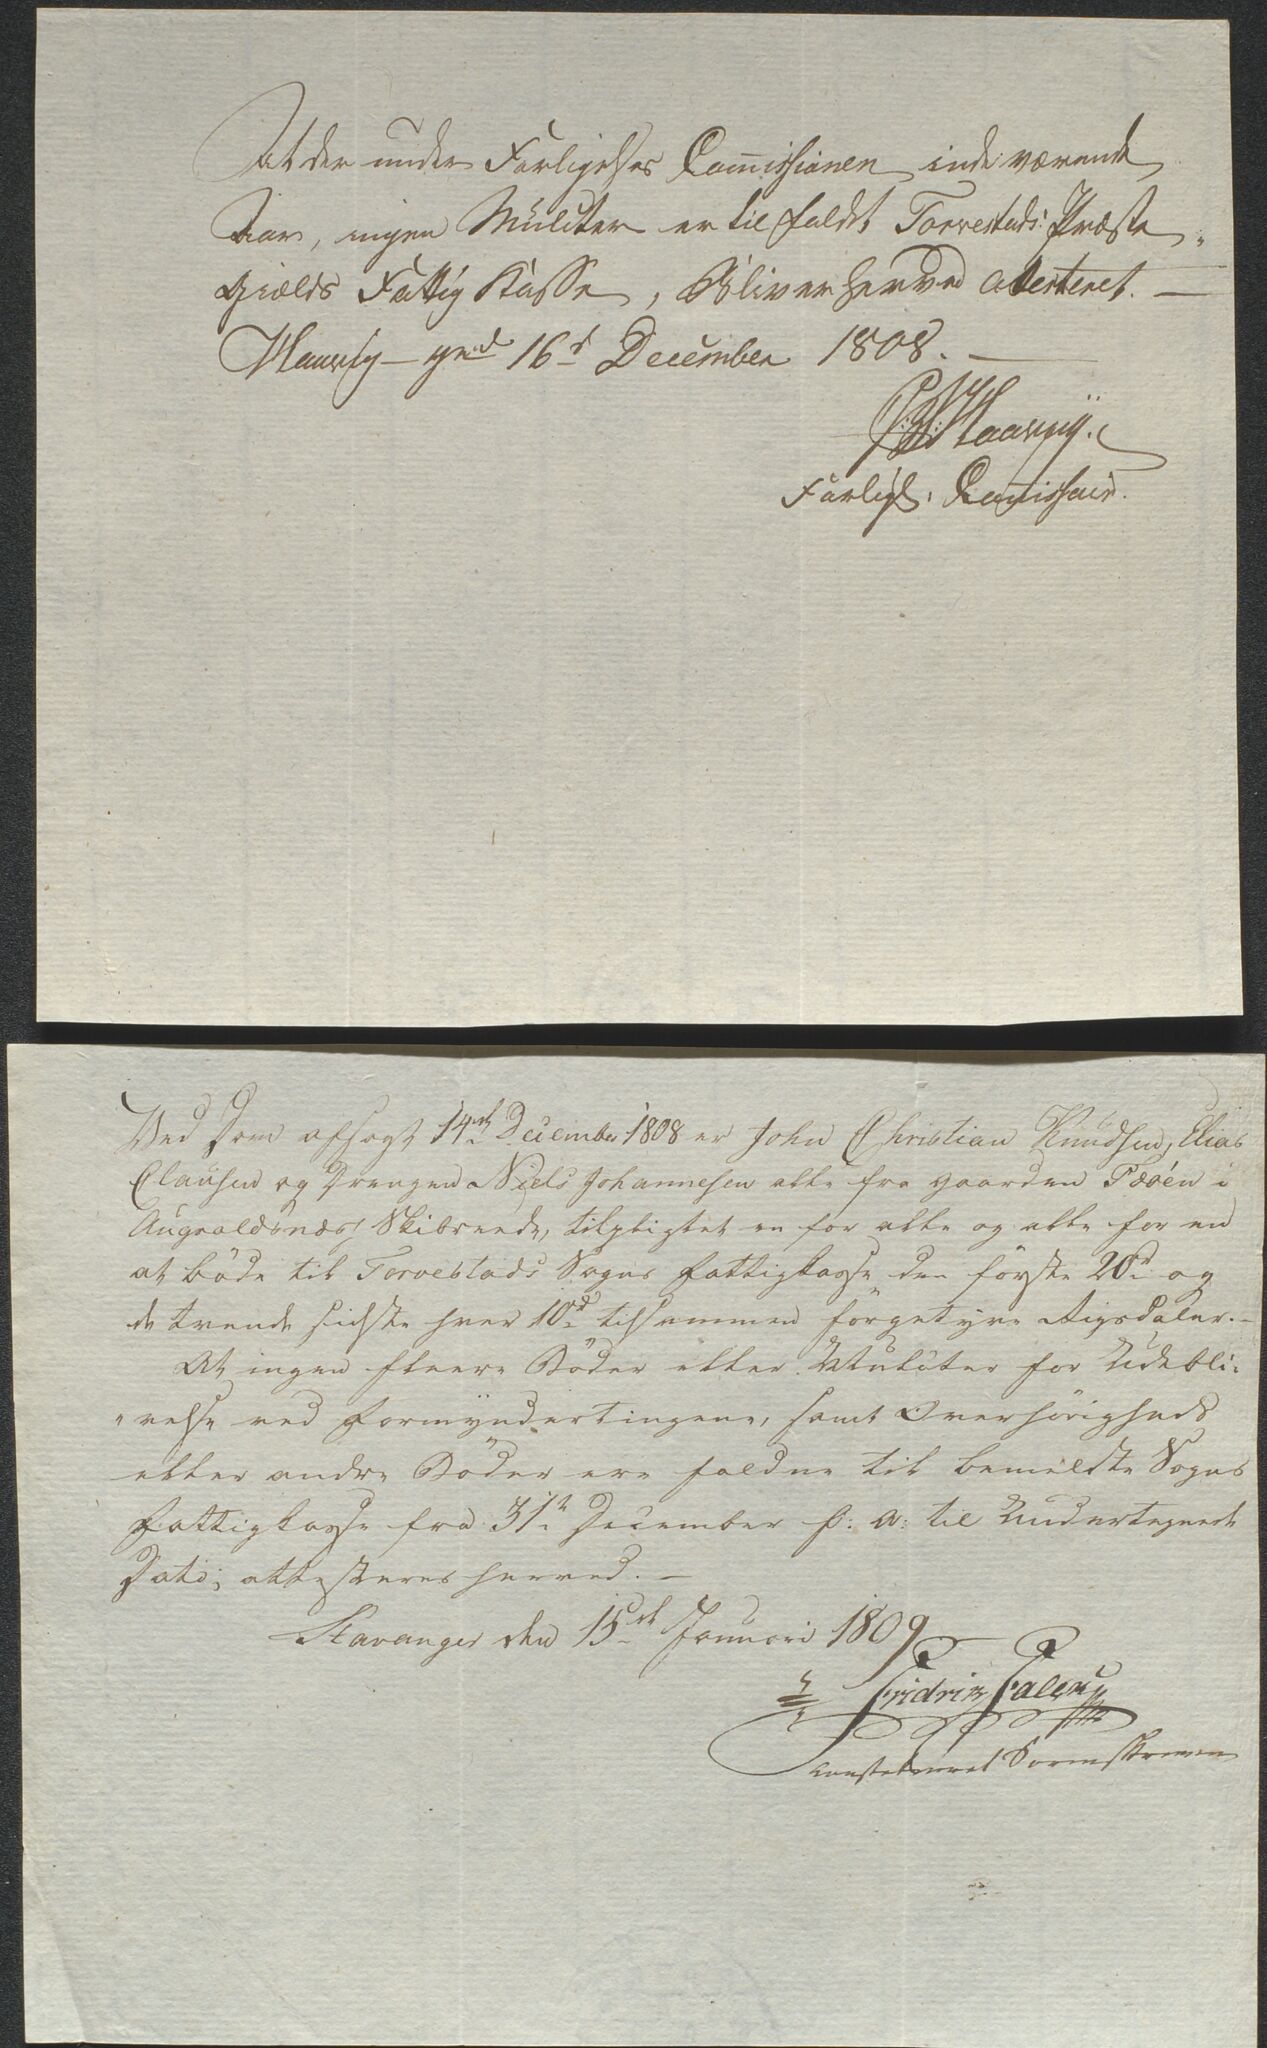 At der under Forligelses Commissionen inde værende
Aar, ingen Mulkter er til faldet Torvestads Præste-
Gields Fattig Kasse, Bliver herved attesteret. —
16d December 1808. —
Forligl: Commissair.
Ved Dom afsagt 14de December 1808 er John Christian Knudsen, Elias
Clausen og Drengen Niels Johannesen alle fra Gaarden Fæöen i
Augvaldsnæs Skibrede, tilpligtet en for alle og alle for en
at böde til Torvestads Sogns Fattigkasse den förste 20d og
de tvende sidste hver 10d tilsammenförgetyve Rigsdaler. —
At ingen fleere Böder eller Mulcter for Udebli-
velse ved Formyndertingene, samt Overhörigheds
eller andre Böder ere faldne til bemeldte Sogns
Fattigkasse fra 31te December f: A: til Undertegnede
Dato, attesteres herved. —
Stavanger den 15de Januari 1809
constitueret Sorenskriver